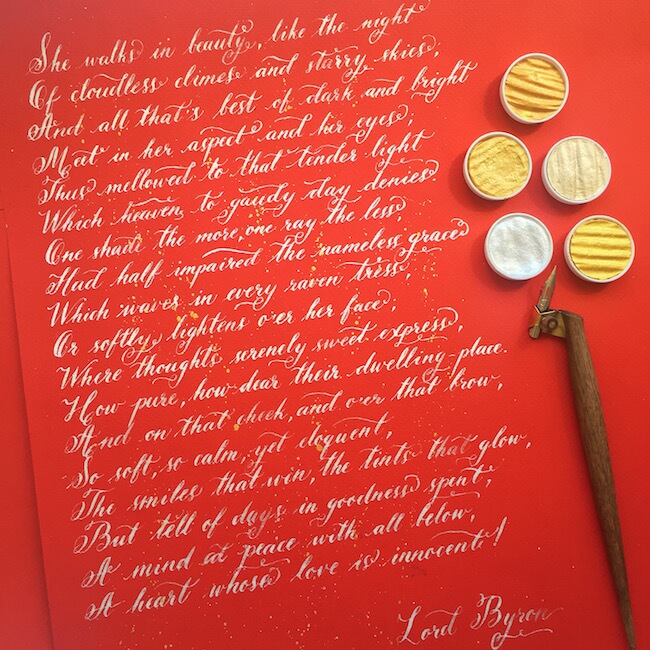 She walks in beauty, like the night
Of cloudless climes and starry skies;
And all that's best of dark and bright
Meet in her aspect and her eyes;
Thus mellowed to that tender light
Which heaven to gaudy day denies
One shade the more, one ray the less,
Had half impaired the nameless grace
Which waves in every raven tress,
Or softly lightens o'er her face;
Where thoughts serenely sweet express,
How pure, how dear their dwelling-place.
And on that cheek, and o'er that brow,
So soft, so calm, yet eloquent,
The smiles that win, the tints that glow,
But tell of days in goodness spent,
A mind at peace with all below,
A heart whose love is innocent!
Lord Byron